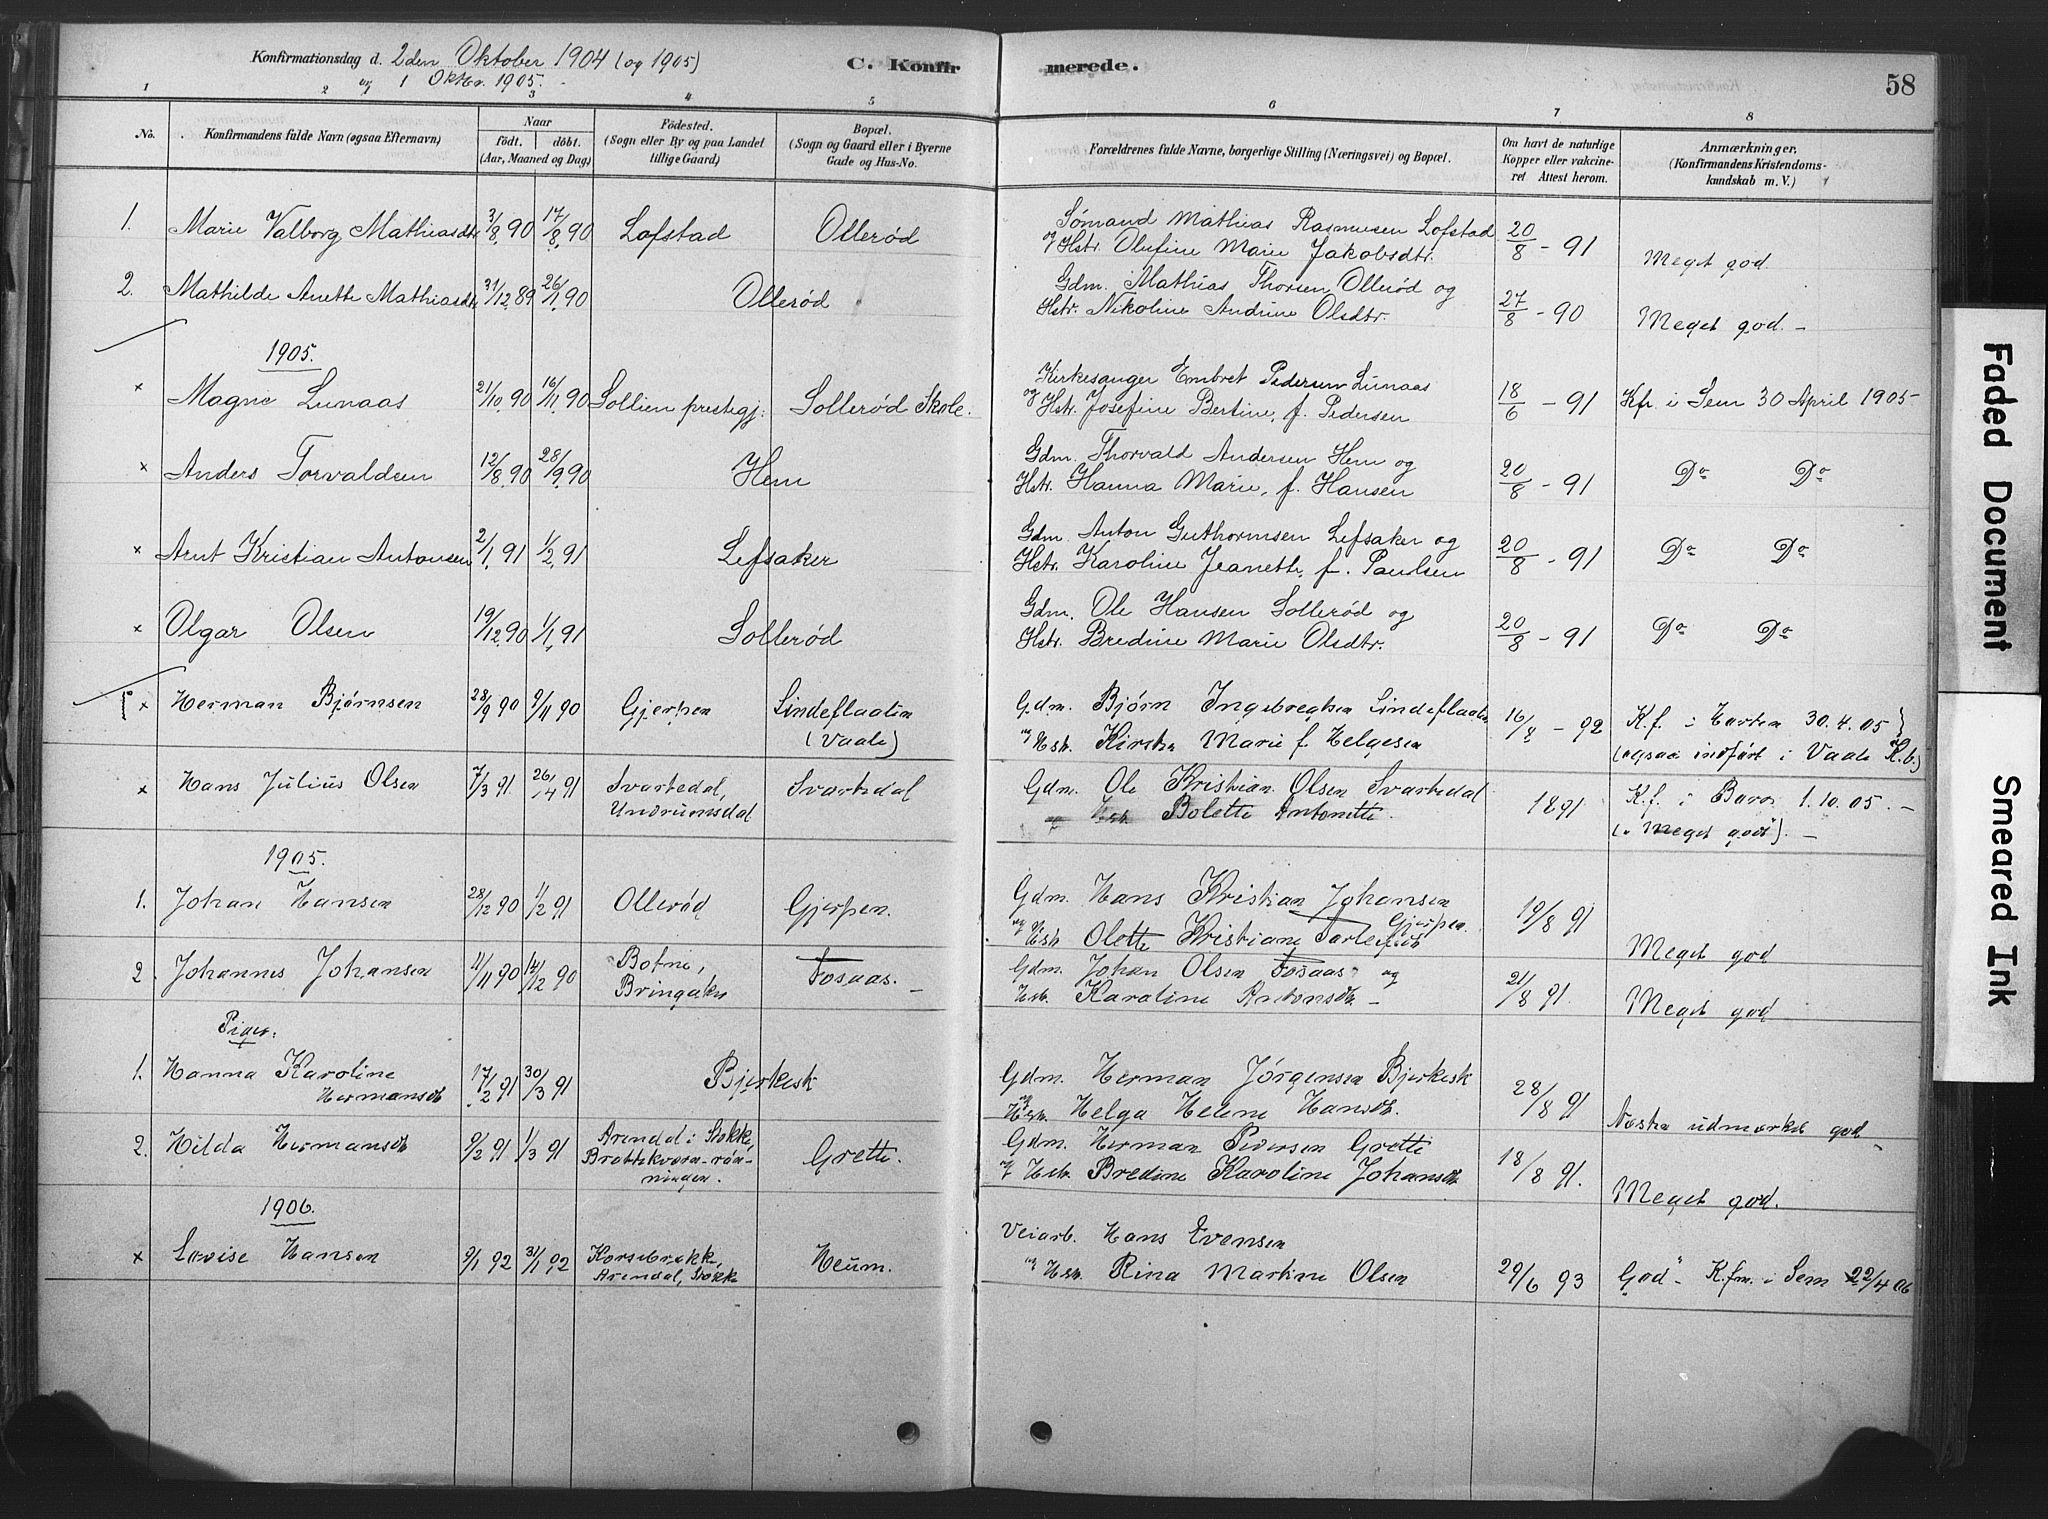 Konfirmationsdag d. 2den Oktober 1904 (og 1905)
og 1 Oktbr. 1905.
C. Konfirmerede.
58
1 2 3 4 5 6 7 8
No.
Konfirmandens fulde Navn (ogsaa Efternavn)
Naar
født. døbt.
(Aar, Maaned og Dag)
Fødested.
(Sogn eller By og paa Landet
tillige Gaard)
Bopæl.
(Sogn og Gaard eller i Byerne
Gade og Hus-No.
Forældrenes fulde Navne, borgerlige Stilling (Næringsvei) og Bopæl.
Om havt de naturlige
Kopper eller vakcine-
ret Attest herom.
Anmærkninger.
(Konfirmandens Kristendoms-
kundskab m. V.)
1. Marie Valborg Mathiasdtr 3/8 90 17/8 90 Lofstad Ollerød Sømand Mathias Rasmusen Lofstad
og Hstr. Olufine Marie Jakobsdtr. 20/8 - 91 Meget god.
2. Mathilde Anette Mathiasdtr 31/12 89 26/1 90 Ollerød Gdm. Mathias Thorsen Ollerød og
Hstr. Nikoline Andrine Olsdtr. 27/8 - 90 Meget god. -
1905.
x Magne Lunaas 21/10 90 16/11 90 Sollien prestegj: Sollerød Skole. Kirkesanger Embret Pedersen Lunaas
og Hstr. Josefine Bertine, f. Pedersen 18/6 - 91 Kfr. i Sem 30 April 1905-
x Anders Torvaldsen 12/8 90 28/9 90 Hem Gdm. Thorvald Andersen Hem og
Hstr. Hanna Marie, f. Hansen 20/8 - 91 Do Do
x Arnt Kristian Antonsen 2/1 91 1/2 91 Lefsaker Gdm. Anton Guthormsen Lefsaker og
Hstr. Karoline Jeanette, f. Paulsen 20/8 - 91 Do Do
x Olgar Olsen 19/12 90 1/1 91 Sollerød Gdm. Ole Hansen Sollerød og
Hstr. Bredine Marie Olsdtr. 20/8 - 91 Do Do
x Herman Bjørnsen 28/9 90 9/11 90 Gjerpen Lindeflaaten
(Vaale) Gdm. Bjørn Ingebregtsen Lindeflaaten
og Hstr. Kirstine Marie f. Helgesen 16/8 - 92 K.f. i Horten 30.4.05}
(ogsaa indført i Vaale K.b.)
x Hans Julius Olsen 7/3 91 26/4 91 Svartedal,
Undrumsdal Svartedal Gdm. Ole Kristian Olsen Svartedal
og Hstr. Bolette Antonette. 1891 K.f. i Borre 1.10.05. -
("Meget god"). -
1905.
1. Johan Hansen 28/12 90 1/2 91 Ollerød Gjerpen. Gdm. Hans Kristian Johansen
Gjerpen
og Hstr. Olette Kristiane 19/8 91 Meget god
2. Johannes Johansen 11/11 90 14/12 90 Botne,
Bringaker Fosaas. - Gdm. Johan Olsen Fosaas og
Hstr. Karoline Antonsdtr. - 21/8 91. Meget god
Piger.
1. Hanna Karoline
Hermansdtr 17/2 91 30/3 91 Bjerkesk Gdm. Herman Jørgensen Bjerkesk
og Hstr. Helga Helene Hansdtr. 28/8 91 Næsten udmærket god
2. Hilda Hermansdtr 9/2 91 1/3 91 Arendal i Stokke,
Brattekværn-røn-
ningen. Grette. Gdm. Herman Pedersen Grette
og Hstr. Bredine Karoline Johansdtr 18/8 91. Meget god.
1906.
x Lovise Hansen 9/1 92 31/1 92 Korsebrekke,
Arendal, Stokke Heum. Veiarb. Hans Evensen
og Hstr. Rina Martine Olsen 29/6 93 God" - K.fm. i Sem 22/4 06
Faded Document
Smeared Ink